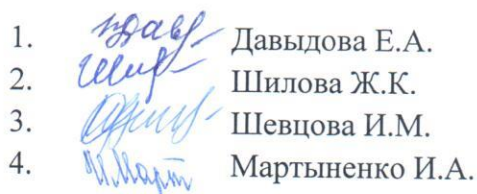 1. Давыдова Е.А.
2. Шилова Ж.К.
3. Шевцова И.М.
4. И.Март Мартыненко И.А.